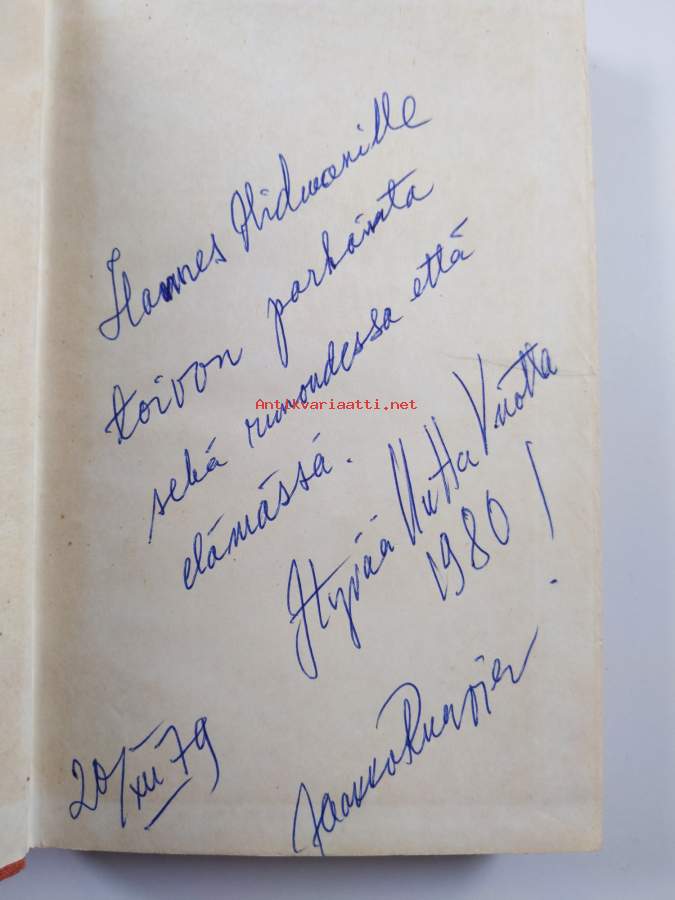 Hannes Hidmanille
toivon parhainta
sekä runoudessa että
elämässä.
Antikvariaatti.net
Hyvää Uutta Vuotta
1980!
20/XII 79
Jaakko Rugojev